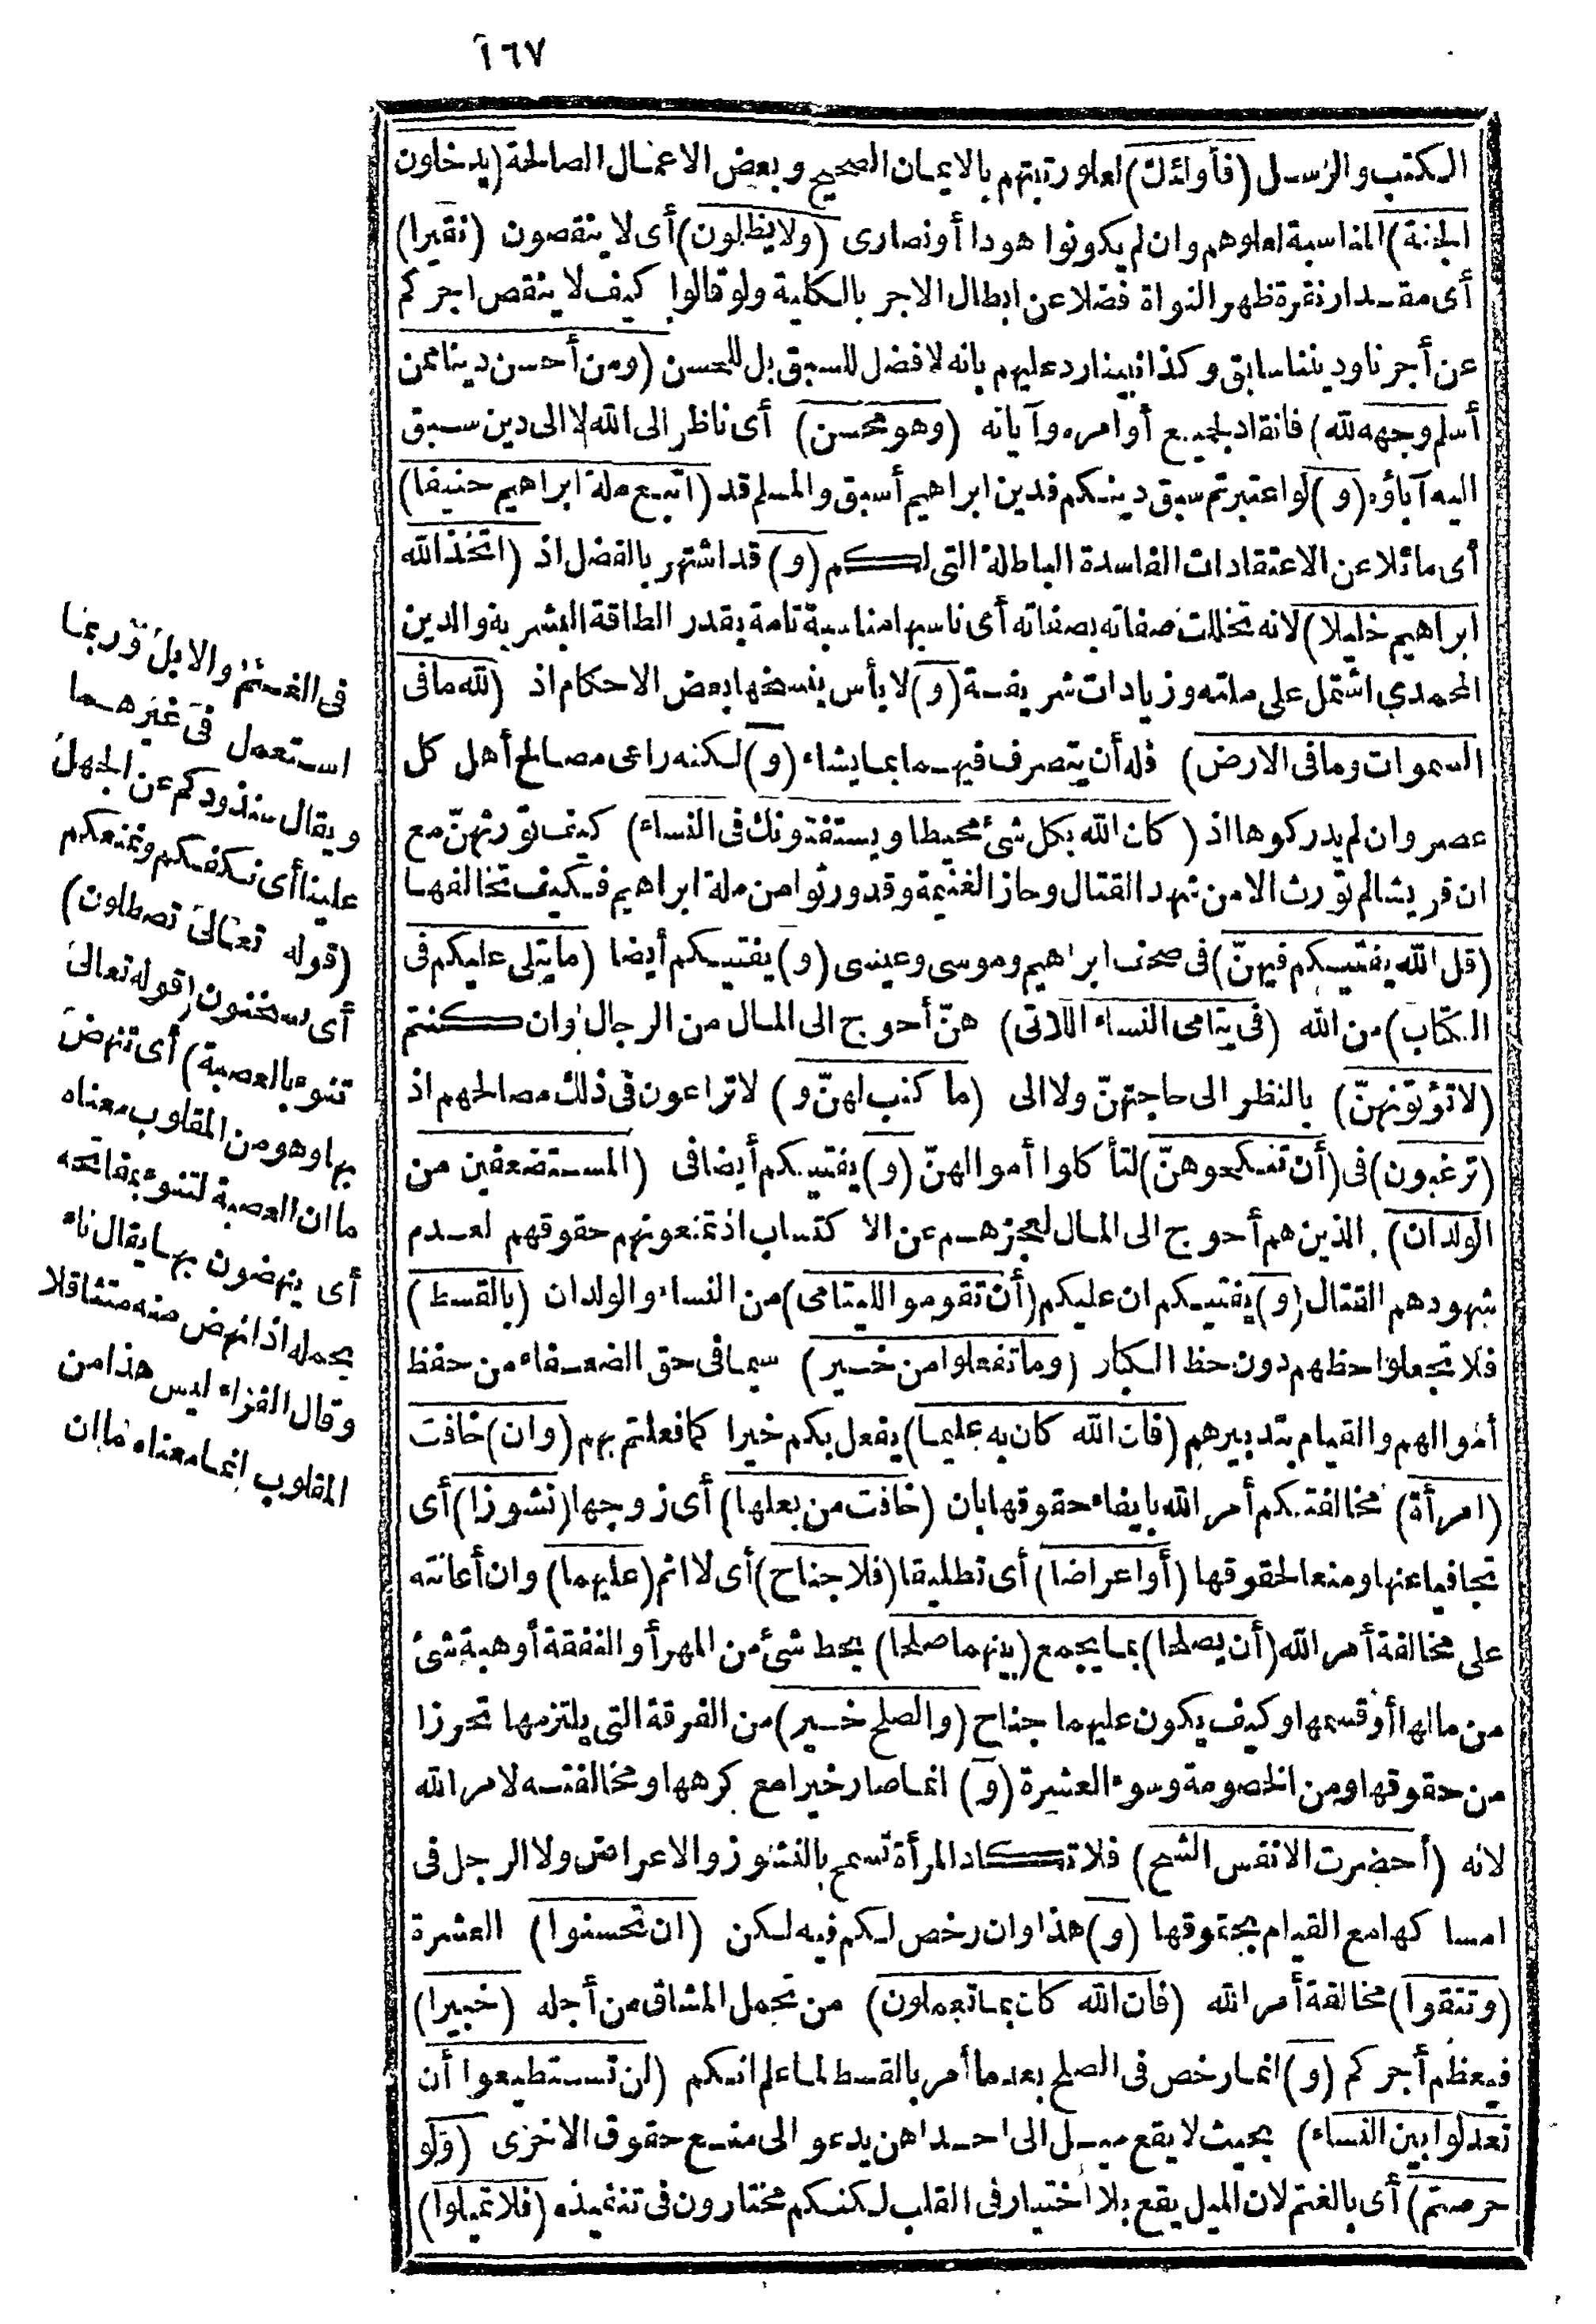 ١٦٧
الكتب والرسل (فأولئك) لعلو رتبتهم بالايمان الصحيح وبعض الاعمال الصالحة (يدخلون
الجنة) المناسبة لعلوهم وان لم يكونوا هودا أو نصارى (ولا يظلون) أى لا ينقصون (نقيرا)
أى مقدار نقرة ظهر النواة فضلا عن ابطال الاجر بالكلية ولو قالوا كيف لا ينقص اجركم
عن أجرنا وديننا سابق وكذا نبينا رد عليهم بانه لا فضل للسبق بل للحسن (ومن أحسن دينا ممن
أسلم وجهه لله) فانقاد لجميع أوامره وآياته (وهو محسن) أى ناظر الى الله لا الى دين سبق
اليه آباؤه (و) لو اعتبرتم سبق دينكم فدين ابراهيم أسبق والمسلم قد (اتبع ملة ابراهيم حنيفا)
أى مائلا عن الاعتقادات الفاسدة الباطلة التى لكم (و) قد اشتهر بالفضل اذ (اتخذ الله
ابراهيم خليلا) لانه تخللت صفاته بصفاته أى ناسبها مناسبة تامة بقدر الطاقة البشرية والدين
المحمدي اشتمل على ملته وزيادات شريفة (و) لا بأس بنسخها بعض الاحكام اذ (لله ما فى
السموات وما فى الارض) فله أن يتصرف فيهما بما يشاء (و) لكنه راعى مصالح أهل كل
عصر وان لم يدركوها اذ (كان الله بكل شئ محيطا ويستفتونك فى النساء) كيف تورثهنّ مع
ان قريشا لم تورث الا من شهد القتال وحاز الغنيمة وقد ورثوا من ملة ابراهيم فكيف تخالفها
(قل الله يفتيكم فيهنّ) فى صحف ابراهيم وموسى وعيسى (و) يفتيكم أيضا (ما يتلى عليكم فى
الكتاب) من الله (فى يتامى النساء اللاتى) هنّ أحوج الى المال من الرجال وان كنتم
(لا تؤتونهنّ) بالنظر الى حاجتهنّ ولا الى (ما كتب لهنّ و) لا تراعون فى ذلك مصالحهم اذ
(ترغبون) فى (أن تنكحوهنّ) لتأكلوا أموالهنّ (و) يفتيكم أيضا فى (المستضعفين من
الولدان) الذين هم أحوج الى المال لعجزهم عن الاكتساب اذ تمنعونهم حقوقهم لعدم
شهودهم القتال (و) يفتيكم ان عليكم (أن تقوموا لليتامى) من النساء والولدان (بالقسط)
فلا تجعلوا حظهم دون حظ الكبار (وما تفعلوا من خير) سيما فى حق الضعفاء من حفظ
أموالهم والقيام بتدبيرهم (فان الله كان به عليما) يفعل بكم خيرا كما فعلتم بهم (وان) خافت
(امرأة) مخالفتكم أمر الله بايفاء حقوقها بان (خافت من بعلها) أى زوجها (نشوزا) أى
تجافيا عنها ومنعا لحقوقها (أو اعراضا) أى تطليقا (فلا جناح) أى لا اثم (عليهما) وان أعانته
على مخالفة أمر الله (أن يصلحا) بما يجمع (بينهما صلحا) بحط شئ من المهر أو النفقة أو هبة شئ
من مالها أو قسمها وكيف يكون عليهما جناح (والصلح خير) من الفرقة التى يلتزمها تحرزا
من حقوقها ومن الخصومة وسوء العشيرة (و) انما صار خيرا مع كرهها ومخالفته لامر الله
لانه (أحضرت الانفس الشح) فلا تكاد المرأة تسمح بالنشوز والاعراض ولا الرجل فى
امساكها مع القيام بحقوقها (و) هذا وان رخص لكم فيه لكن (ان تحسنوا) العشرة
(وتتقوا) مخالفة أمر الله (فان الله كان بما تعملون) من تحمل المشاق من أجله (خبيرا)
فيعظم أجركم (و) انما رخص فى الصلح بعد ما أمر بالقسط لما علم انكم (لن تستطيعوا أن
تعدلوا بين النساء) بحيث لا يقع ميل الى احداهن يدعو الى منع حقوق الاخرى (ولو
حرصتم) أى بالغتم لان الميل يقع بلا اختيار فى القلب لكنكم مختارون فى تنفيذه (فلا تميلوا)
فى الغنم والابل وربما
استعمل فى غيرهما
ويقال سنذودكم عن الجهل
علينا أى نكفكم ونمنعكم
(قوله تعالى تصطلون)
أى تسخنون (قوله تعالى
تنوء بالعصبة) أى تنهض
بها وهو من المقلوب معناه
ما ان العصبة لتنوء بمفاتحه
أى ينهضون بها يقال ناء
بحمله اذا نهض منه متثاقلا
وقال الفراء ليس هذا من
المقلوب انما معناه ما ان